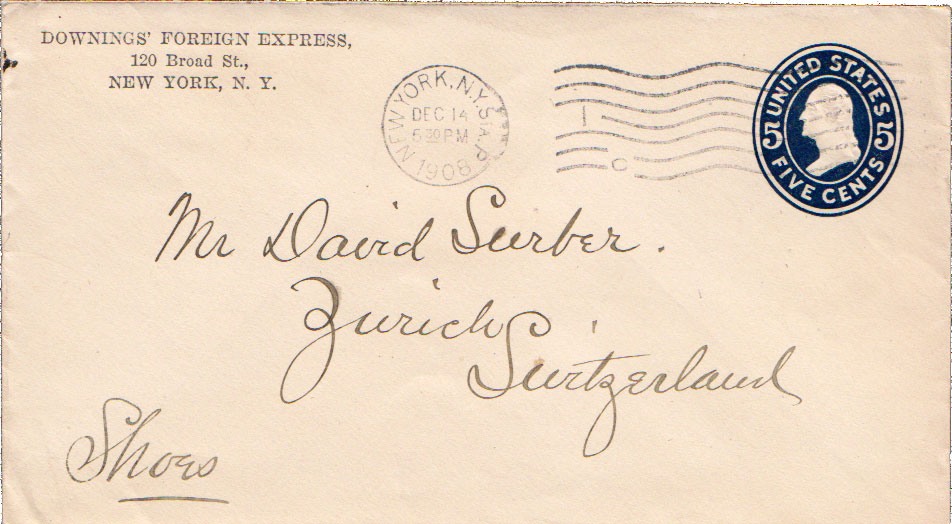 DOWNINGS' FOREIGN EXPRESS,
120 Broad St.,
NEW YORK, N. Y.
NEW YORK, N.Y. STA. P
DEC 14
1908
UNITED STATES
5 5
FIVE CENTS
Mr David Surber.
Zurich
Switzerland
Shoes